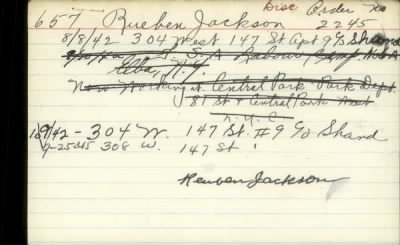 657 Rueben Jackson Disc Order No
2245
8/8/42 304 West 147 St Apt 9 c/o Shand
U.S.A. Labour
N.Y.
Now Working at Central Park Park Dept.
81 St & Central Park West
N.Y.C.
1/9/42 - 304 W. 147 St. #9 c/o Shand
7-25-45 308 W. 147 St
Reuben Jackson